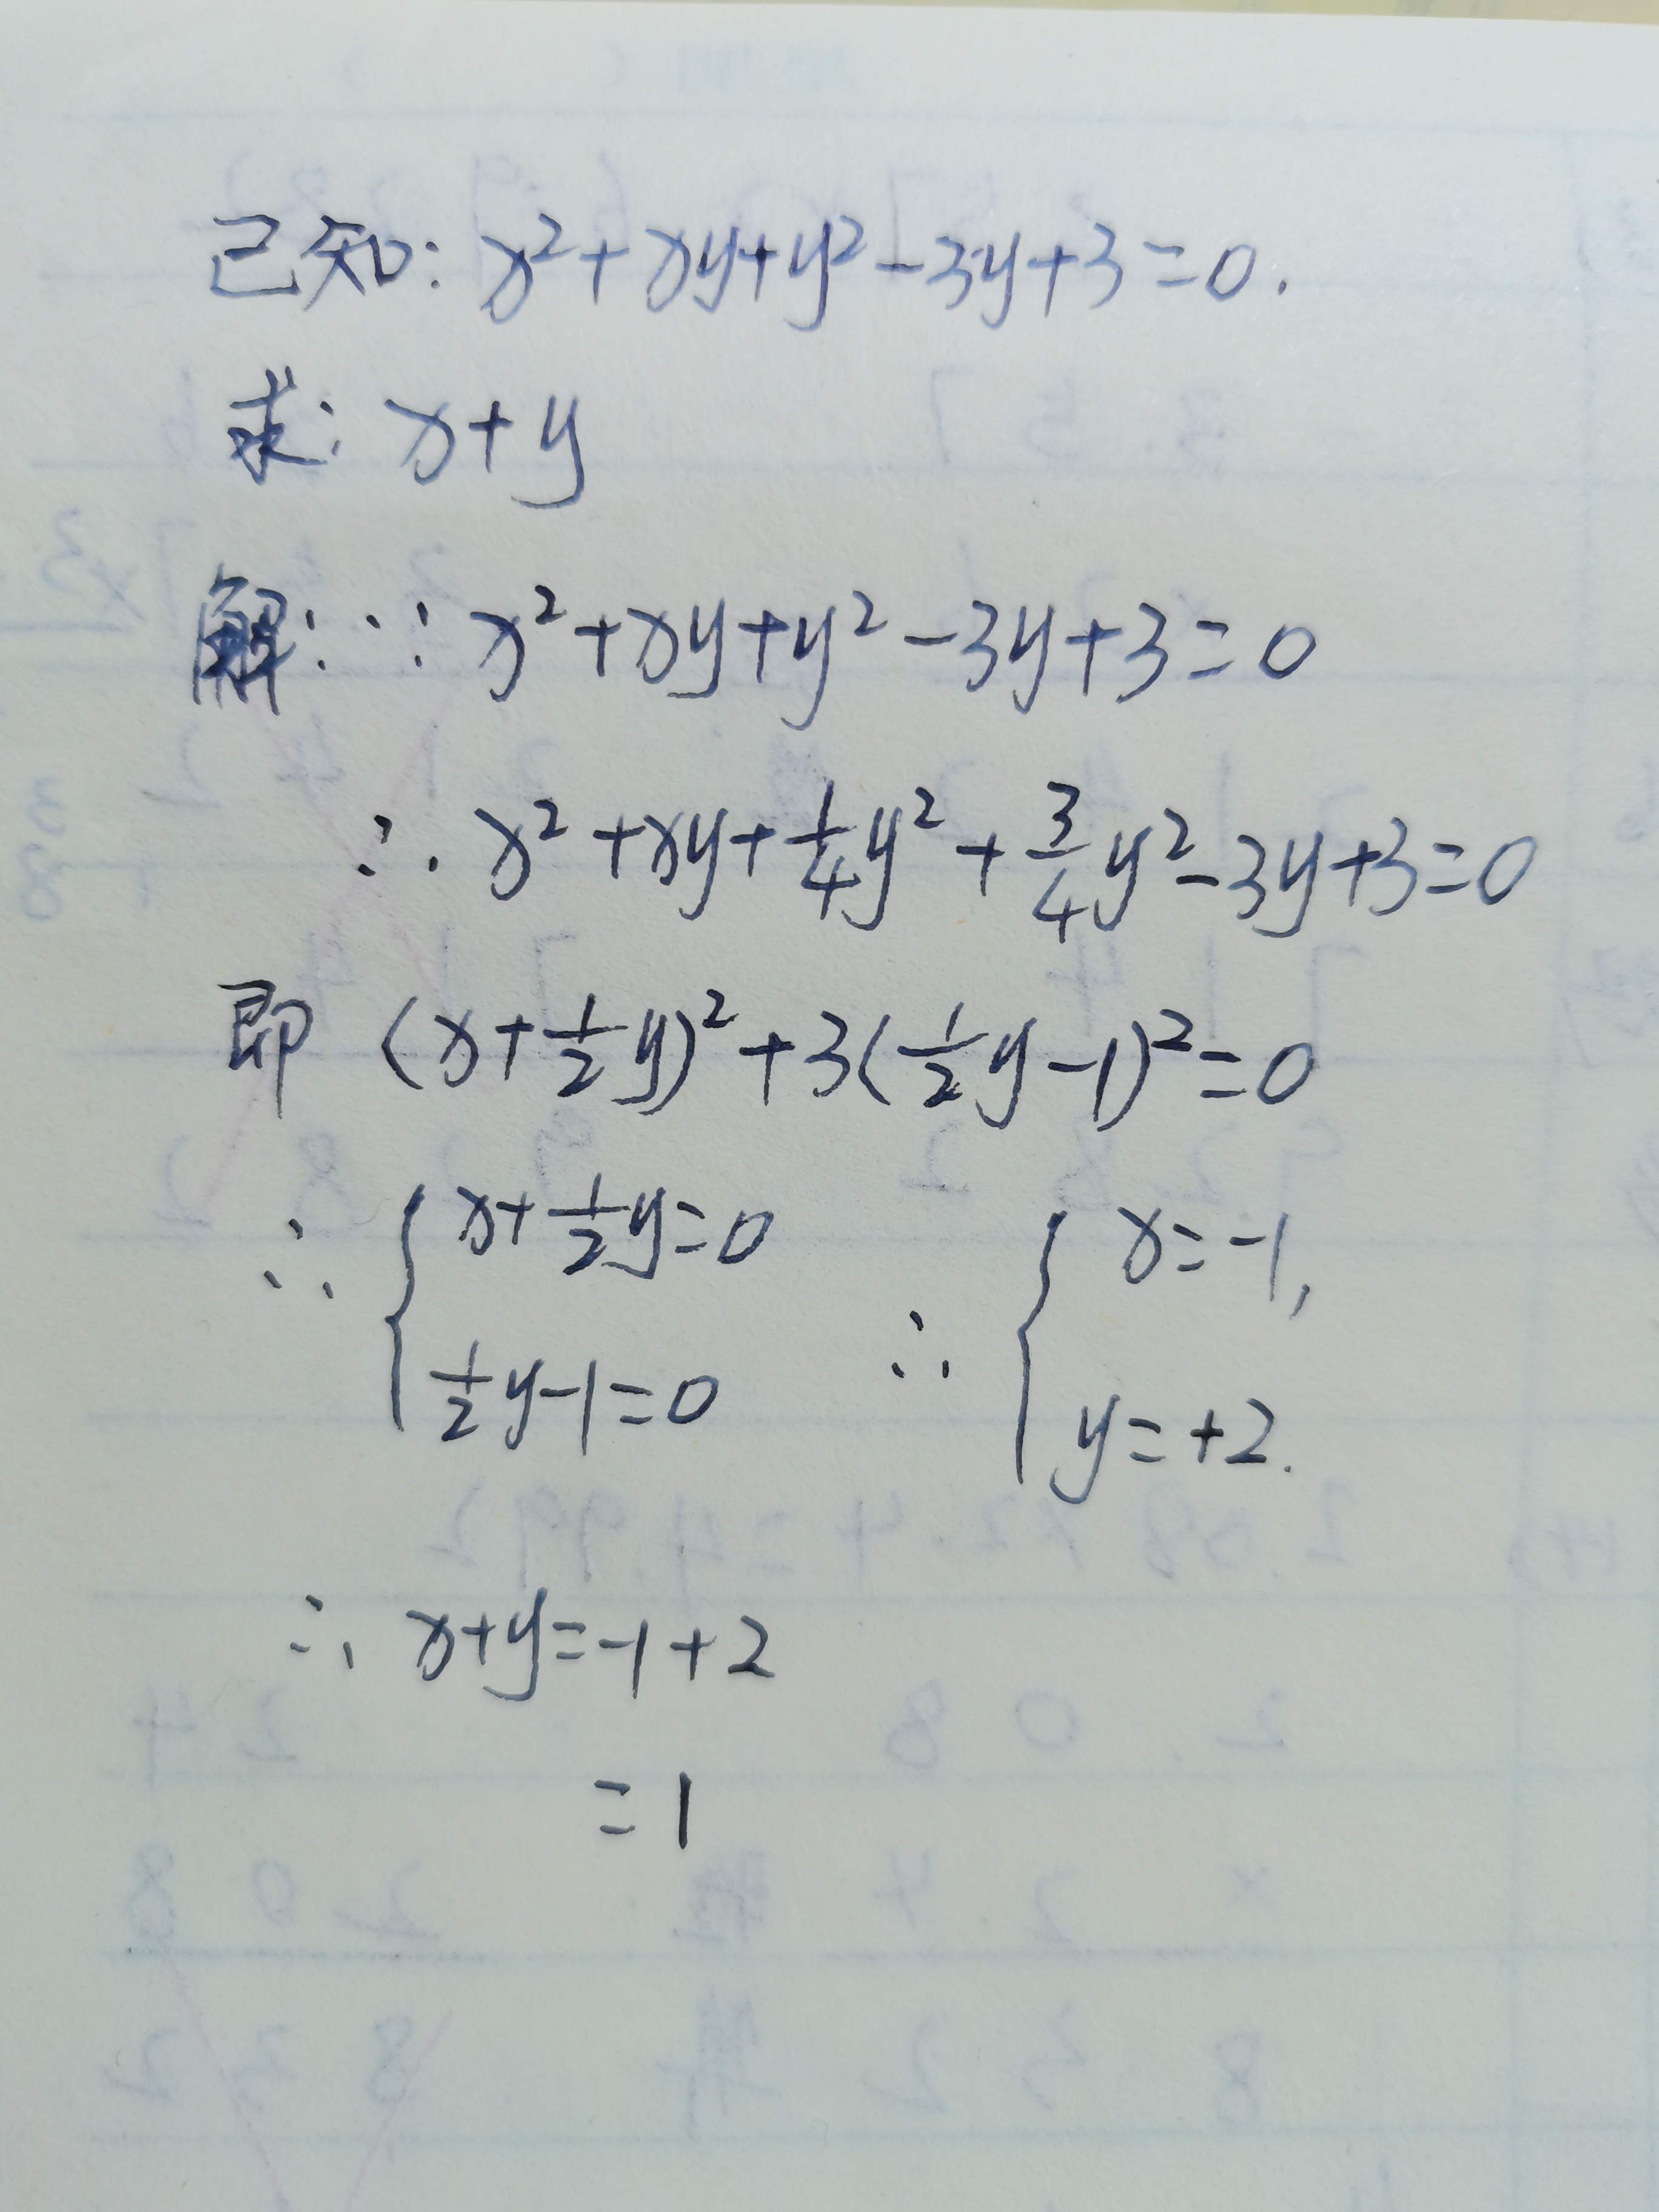 已知: x²+xy+y²-3y+3=0.
求: x+y
解: ∵ x²+xy+y²-3y+3=0
∴ x²+xy+1/4y²+3/4y²-3y+3=0
即 (x+1/2y)²+3(1/2y-1)²=0
∴ { x+1/2y=0 ∴ { x=-1,
1/2y-1=0 y=+2.
∴ x+y=-1+2
=1